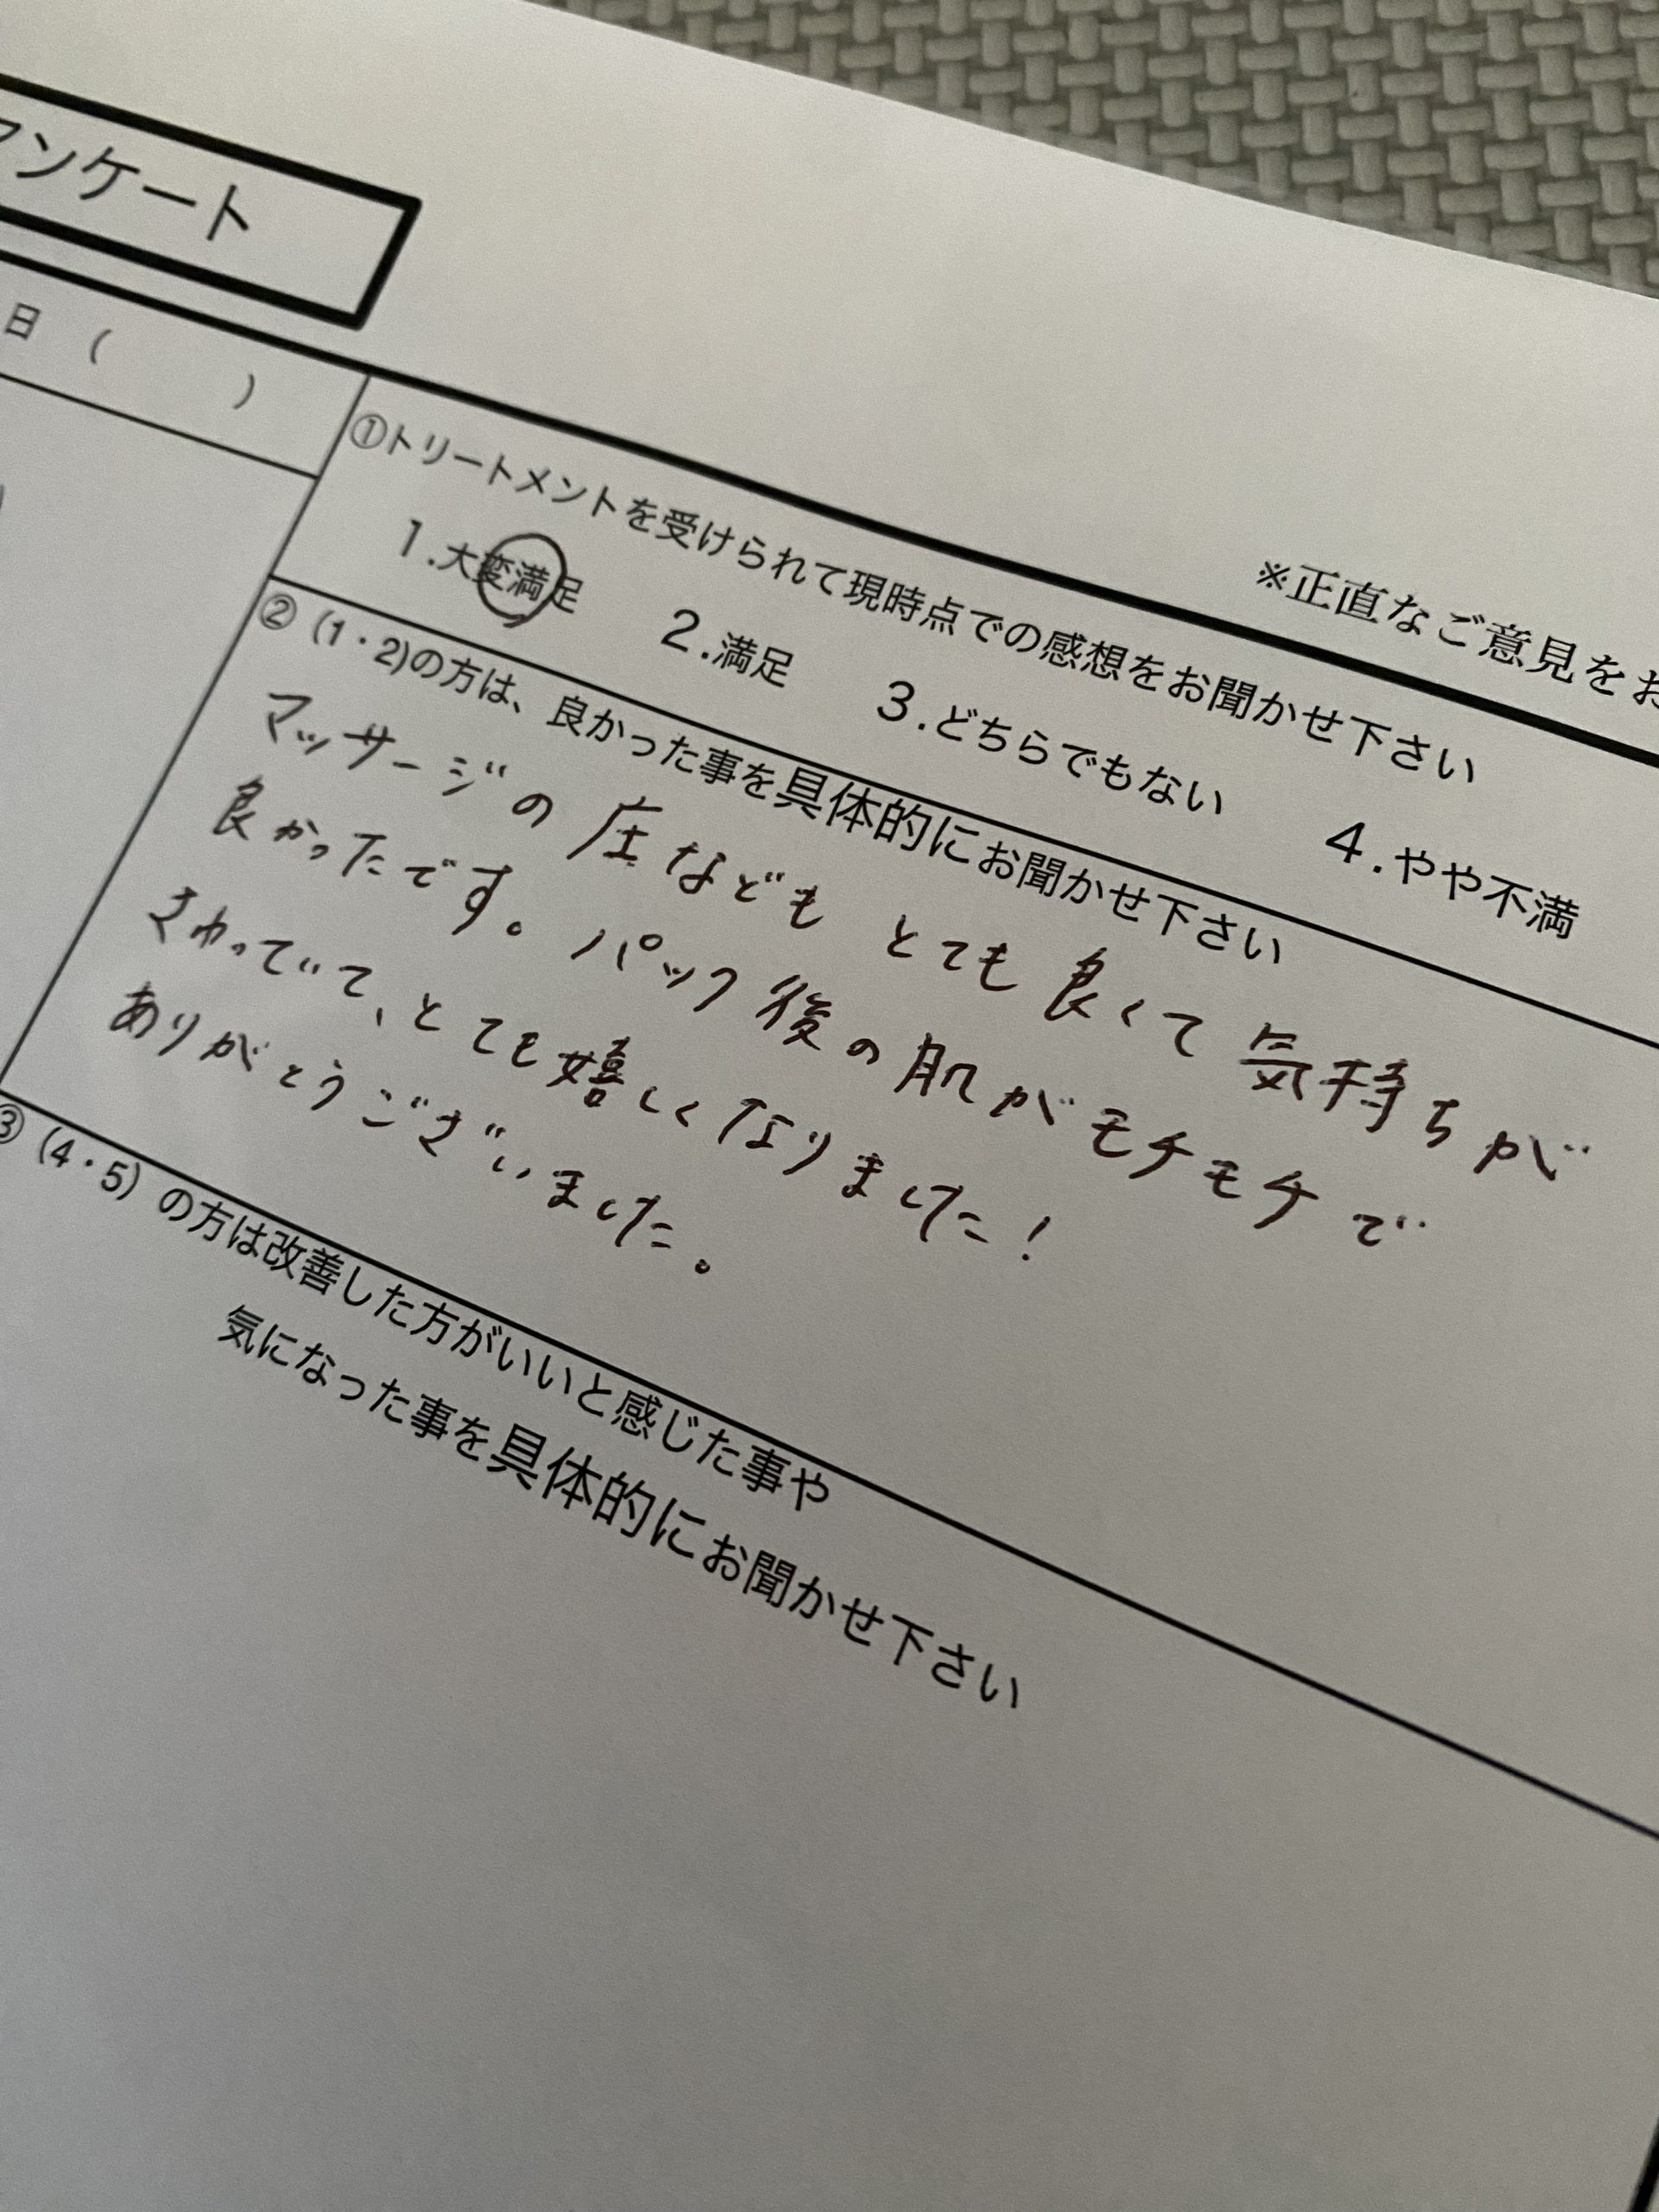 アンケート
日 （　　）
※正直なご意見をお
①トリートメントを受けられて現時点での感想をお聞かせ下さい
1.大変満足 2.満足 3.どちらでもない 4.やや不満
②（1・2)の方は、良かった事を具体的にお聞かせ下さい
マッサージの圧なども とても良くて気持ちが
良かったです。パック後の肌がモチモチで
さわっていて、とても嬉しくなりました！
ありがとうございました。
③（4・5）の方は改善した方がいいと感じた事や
気になった事を具体的にお聞かせ下さい